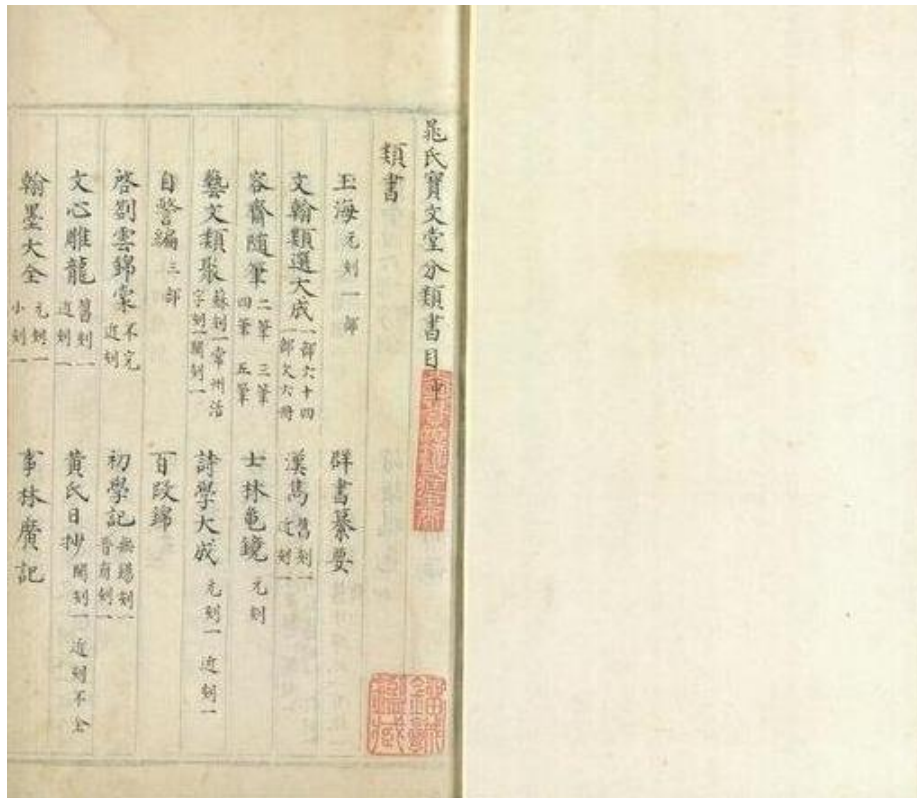 晁氏寶文堂分類書目中
類書
玉海 元刻一部 群書纂要
文翰類選大成 一部六十四 一部欠六冊 漢雋 舊刻一 近刻一
容齋随筆 二筆 三筆 四筆 五筆 士林龜鏡 元刻
藝文類聚 蘇刻一常州活字刻一閩刻一 詩學大成 元刻一 近刻一
自警編 三部 百段錦
啓劄雲錦裳 不完 近刻 初學記 無錫刻一 晉府刻一
文心雕龍 舊刻一 近刻一 黃氏日抄 閩刻一 近刻不全
翰墨大全 元刻一 小刻一 事林廣記